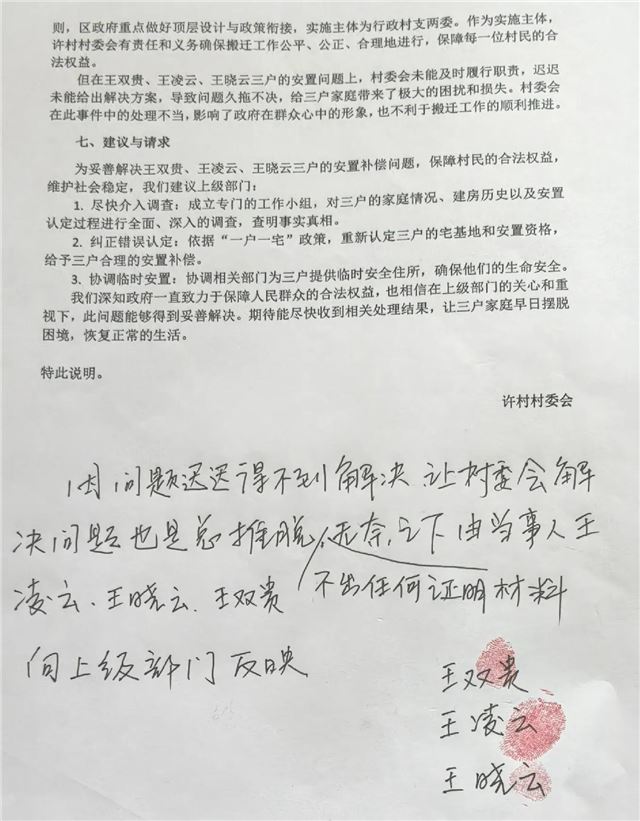 则，区政府重点做好顶层设计与政策衔接，实施主体为行政村支两委。作为实施主体，
许村村委会有责任和义务确保搬迁工作公平、公正、合理地进行，保障每一位村民的合
法权益。
但在王双贵、王凌云、王晓云三户的安置问题上，村委会未能及时履行职责，迟迟
未能给出解决方案，导致问题久拖不决，给三户家庭带来了极大的困扰和损失。村委会
在此事件中的处理不当，影响了政府在群众心中的形象，也不利于搬迁工作的顺利推进。
七、建议与请求
为妥善解决王双贵、王凌云、王晓云三户的安置补偿问题，保障村民的合法权益，
维护社会稳定，我们建议上级部门：
1. 尽快介入调查：成立专门的工作小组，对三户的家庭情况、建房历史以及安置
认定过程进行全面、深入的调查，查明事实真相。
2. 纠正错误认定：依据“一户一宅”政策，重新认定三户的宅基地和安置资格，
给予三户合理的安置补偿。
3. 协调临时安置：协调相关部门为三户提供临时安全住所，确保他们的生命安全。
我们深知政府一直致力于保障人民群众的合法权益，也相信在上级部门的关心和重
视下，此问题能够得到妥善解决。期待能尽快收到相关处理结果，让三户家庭早日摆脱
困境，恢复正常的生活。
特此说明。
许村村委会
因问题迟迟得不到解决 让村委会解
决问题也是总推脱，无奈之下由当事人王
凌云、王晓云、王双贵 不出任何证明材料
向上级部门反映
王双贵
王凌云
王晓云